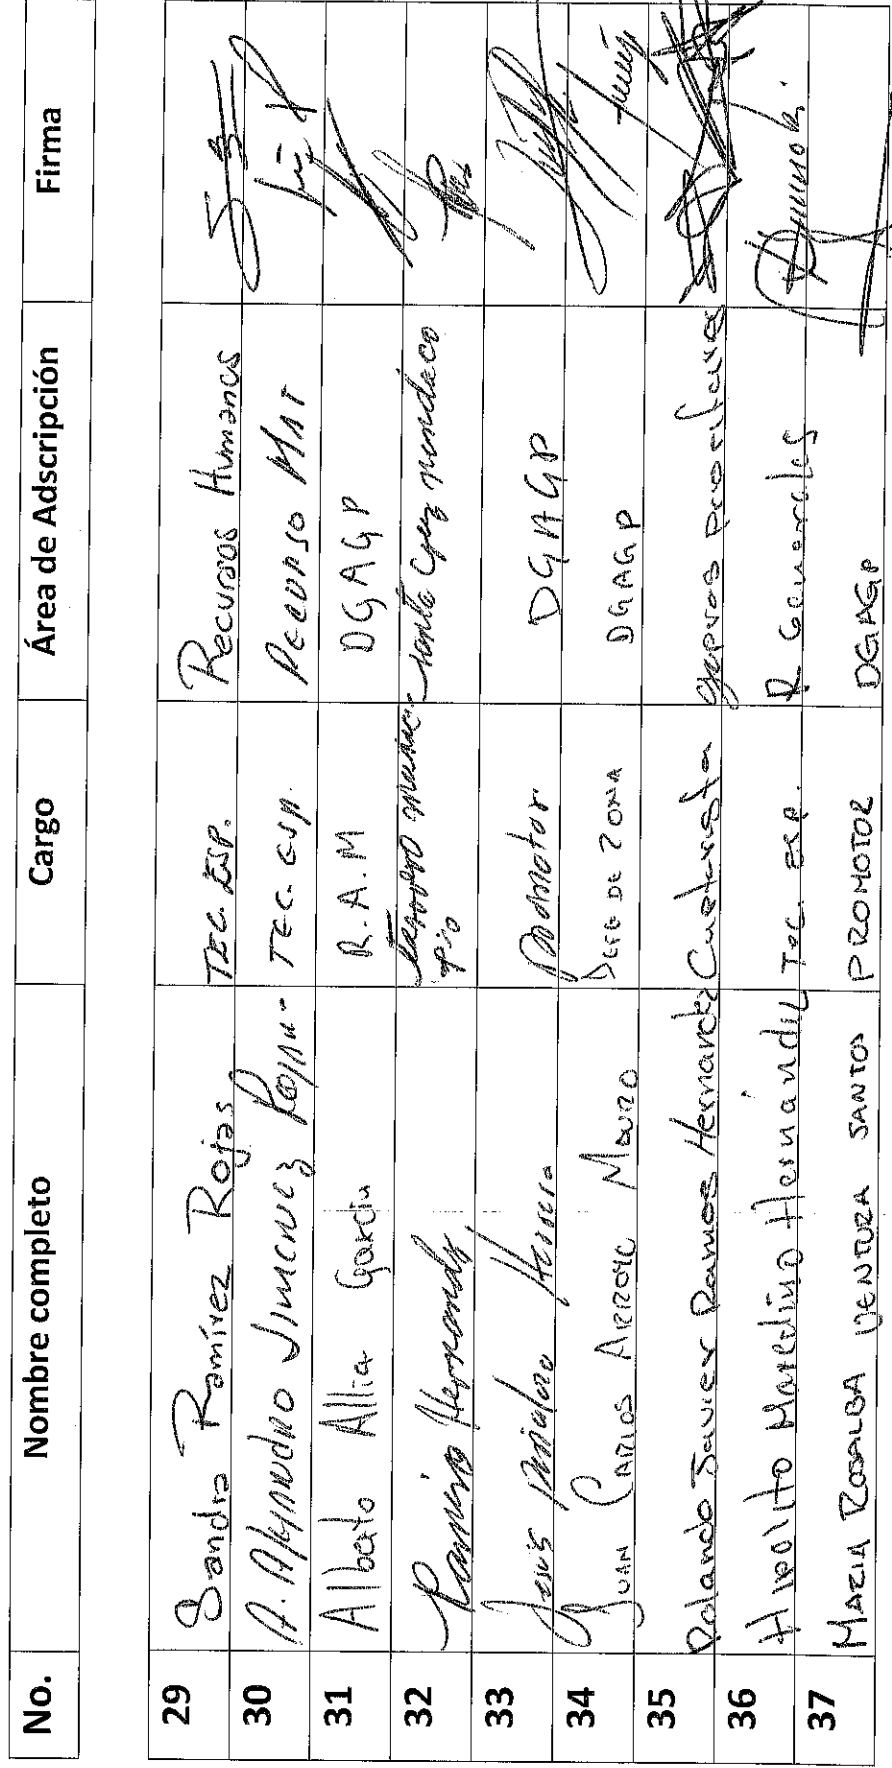 No. Nombre completo Cargo Área de Adscripción Firma
29 Sandra Ramírez Rojas TEC. ESP. Recursos Humanos
30 A. Alejandro Jimenez TEC. ESP. Recurso MAT
31 Alberto Allia Garcia R.A.M DGAGP
32 Ramiro Hernandz. santa Cruz
33 Jesús Herrera Promotor DGAGP
34 Juan Carlos Arroyo Mauro Jefe de Zona DGAGP
35 Rolando Javier Ramos Hernandez
36 Hipolito Marcelino Hernández Tec. ESP. R. Generales
37 MARIA ROSALBA VENTURA SANTOS PROMOTOR DGAGP